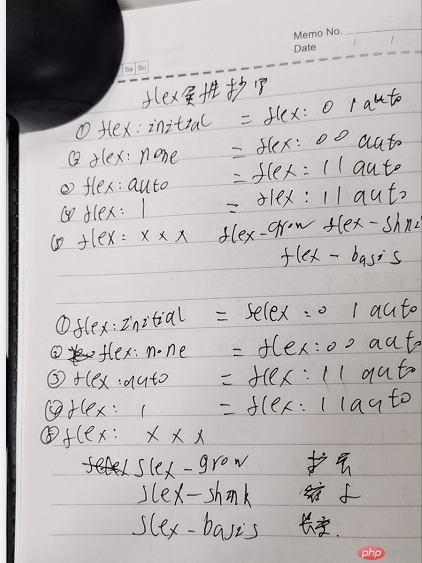 Memo No.
Date / /
Sa Su
flex属性抄写
① flex: initial = flex: 0 1 auto
② flex: none = flex: 00 auto
③ flex: auto = flex: 11 auto
④ flex: 1 = flex: 11 auto
⑤ flex: x x x flex-grow flex-shri
flex-basis
① flex: initial = selex: 0 1 auto
② flex: none = flex: 00 auto
③ flex: auto = flex: 11 auto
④ flex: 1 = flex: 11 auto
⑤ flex: x x x
flex-grow 扩
flex-shink 缩
flex-basis 长度.
php